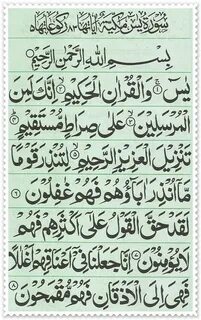 سُورَةُ يٰسٓ مَكِّيَّةٌ اٰيَاتُهَا ٨٣ رُكُوْعَاتُهَا ٥
بِسْمِ اللّٰهِ الرَّحْمٰنِ الرَّحِيْمِ
يٰسٓ ۝١ وَالْقُرْاٰنِ الْحَكِيْمِ ۝٢ اِنَّكَ لَمِنَ
الْمُرْسَلِيْنَ ۝٣ عَلٰى صِرَاطٍ مُّسْتَقِيْمٍ ۝٤
تَنْزِيْلَ الْعَزِيْزِ الرَّحِيْمِ ۝٥ لِتُنْذِرَ قَوْمًا
مَّآ اُنْذِرَ اٰبَآؤُهُمْ فَهُمْ غٰفِلُوْنَ ۝٦
لَقَدْ حَقَّ الْقَوْلُ عَلٰٓى اَكْثَرِهِمْ فَهُمْ
لَا يُؤْمِنُوْنَ ۝٧ اِنَّا جَعَلْنَا فِيْٓ اَعْنَاقِهِمْ اَغْلٰلًا
فَهِيَ اِلَى الْاَذْقَانِ فَهُمْ مُّقْمَحُوْنَ ۝٨